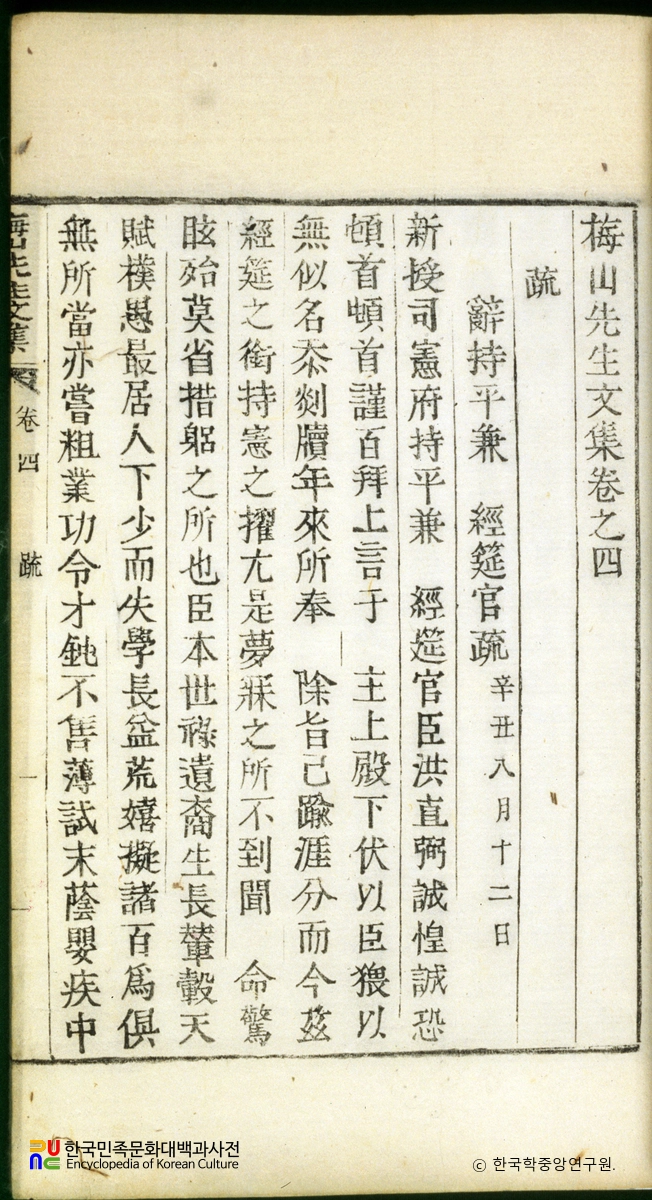 梅山先生文集卷之四
疏
辭持平兼 經筵官疏 辛丑八月十二日
新授司憲府持平兼 經筵官臣洪直弼誠惶誠恐
頓首頓首謹百拜上言于 主上殿下伏以臣猥以
無似名忝剡牘年來所奉 除旨已踰涯分而今玆
經筵之銜持憲之擢尤是夢寐之所不到聞 命驚
眩殆莫省措躬之所也臣本世祿遺裔生長輦轂天
賦樸愚最居人下少而失學長益荒嬉擬諸百爲俱
無所當亦嘗粗業功令才鈍不售薄試末蔭嬰疾中
梅山先生文集 卷四 疏 一
한국민족문화대백과사전
Encyclopedia of Korean Culture
© 한국학중앙연구원.